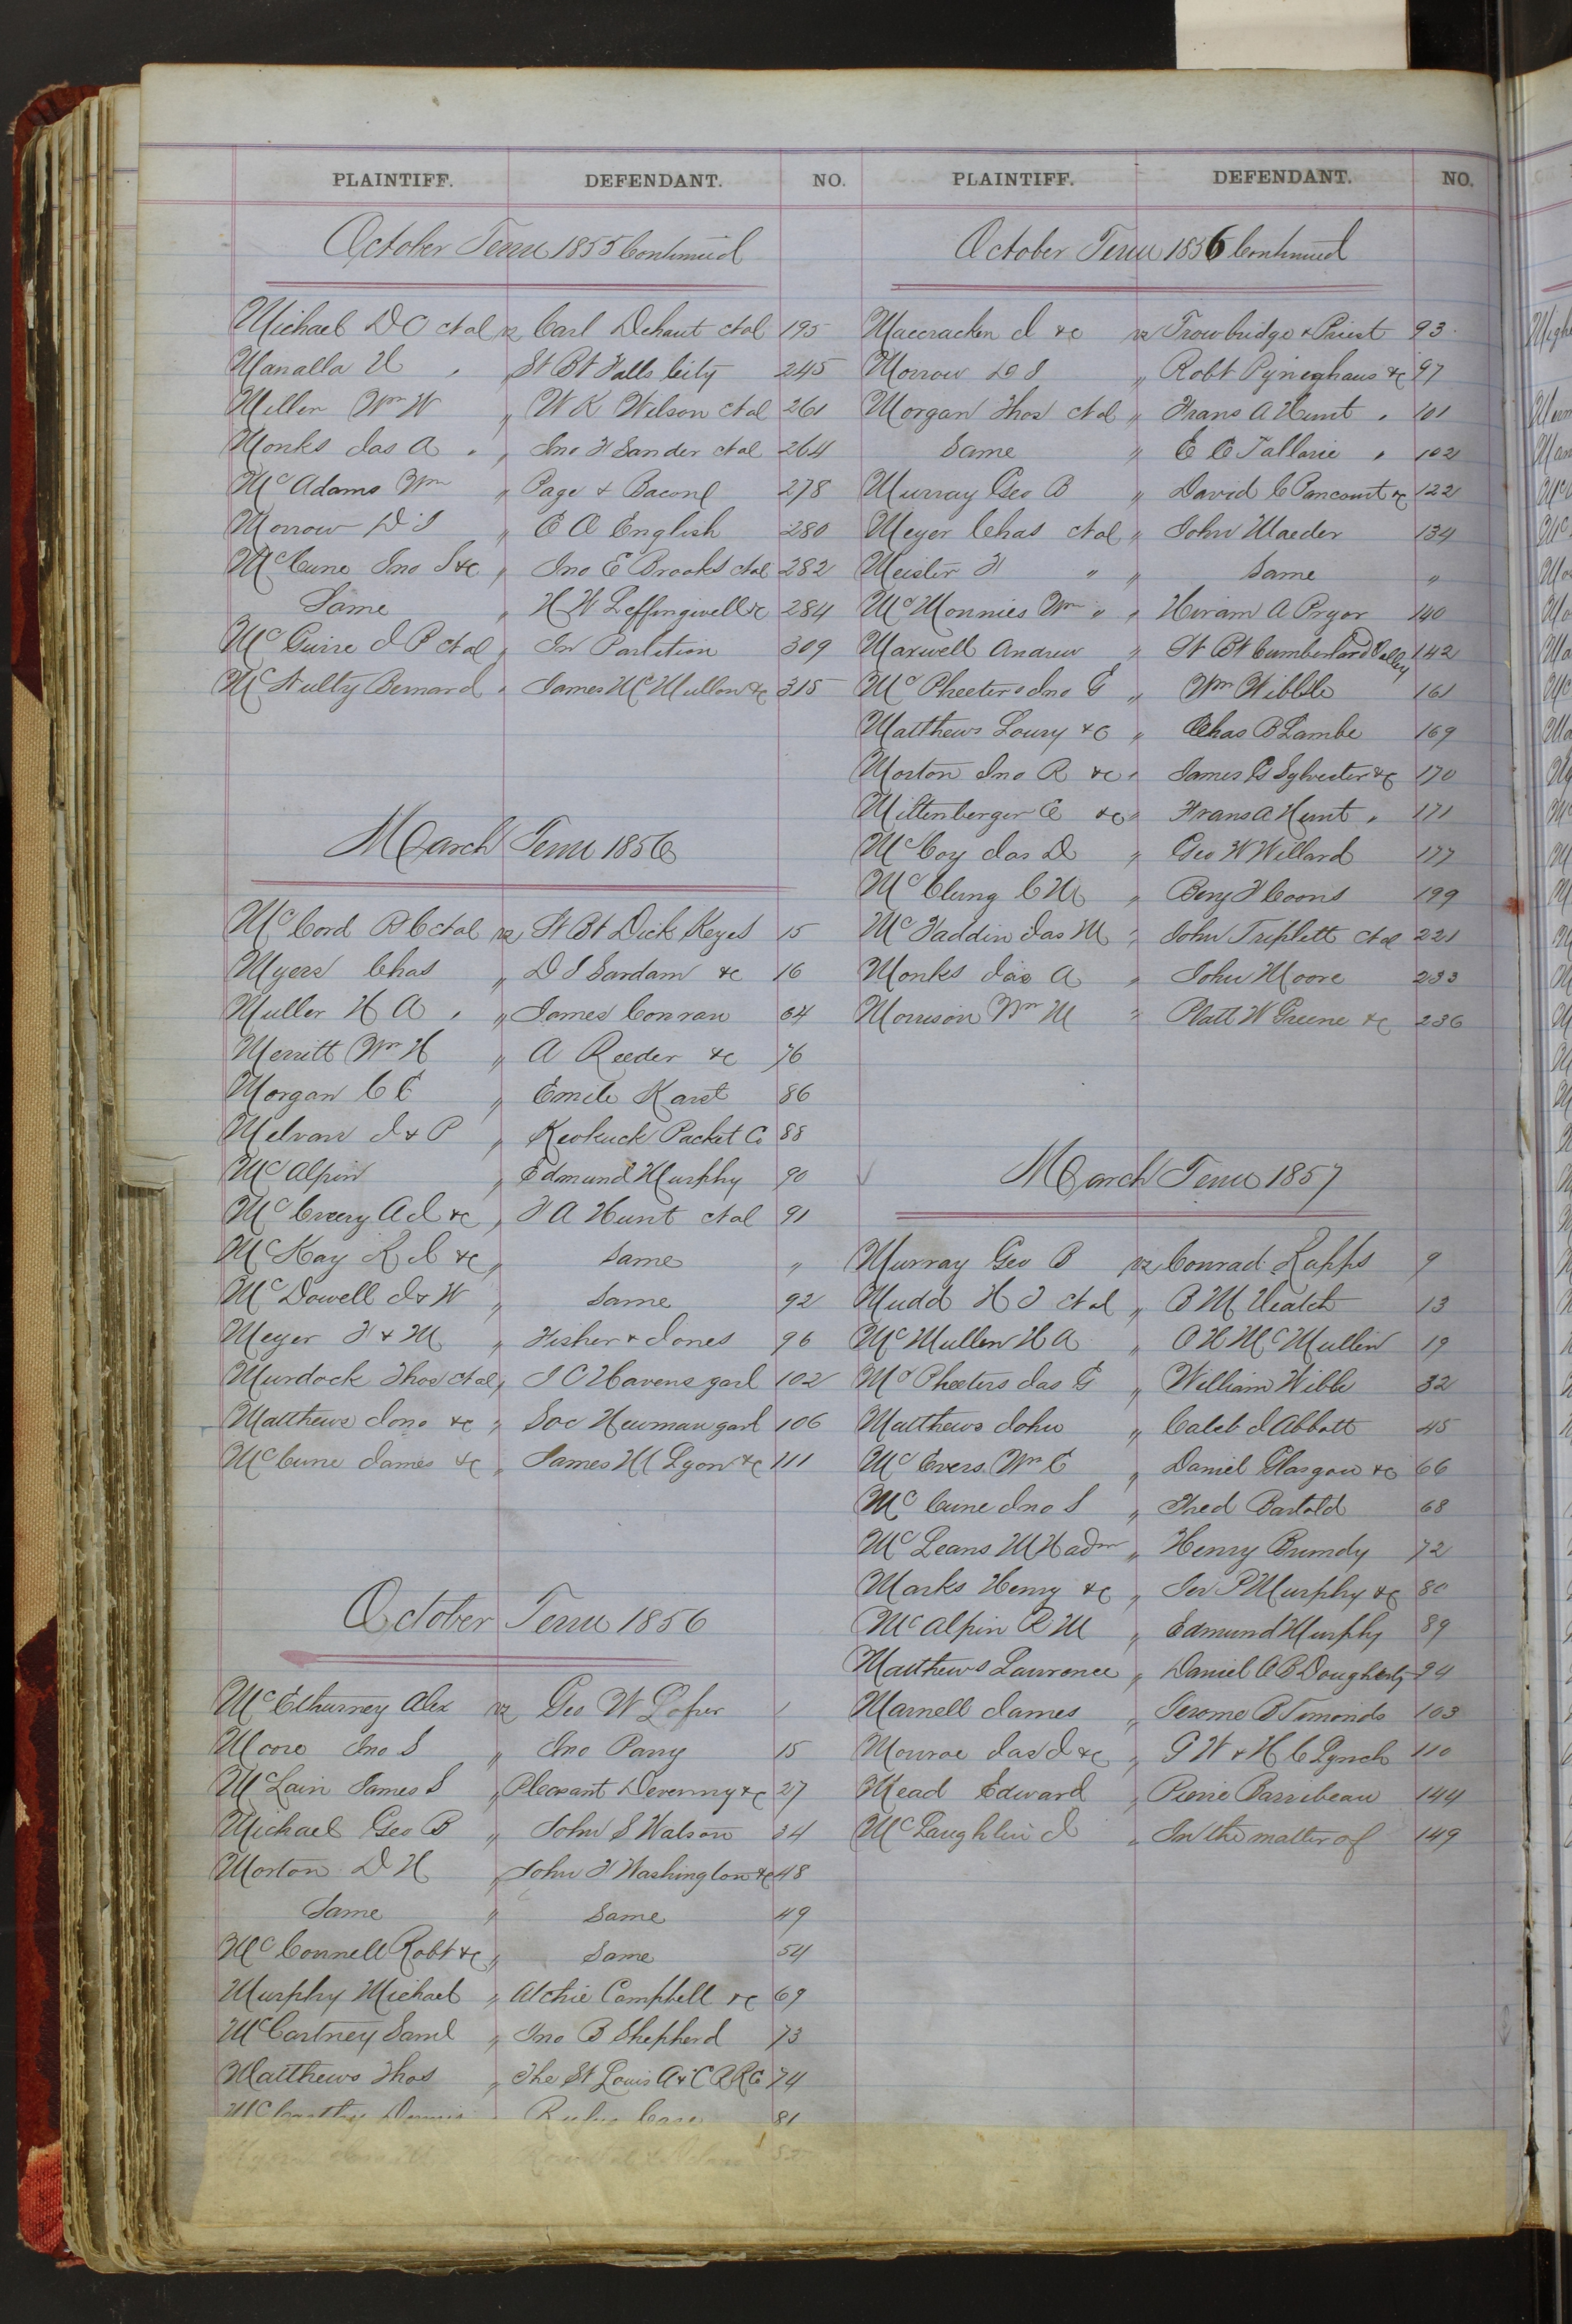 PLAINTIFF. DEFENDANT. NO.
October Term 1855 Continued
Michael D O et al vs Carl Dehaut et al 195
Manalla U " St Bt Falls City 245
Miller Wm W " W K Wilson et al 261
Monks Jas A " Jno F Sander et al 264
McAdams Wm " Page & Bacon 278
Morrow D S " E A English 280
McCune Jno S &c " Jno E Brooks et al 282
Same " H W Leffingwell &c 284
McGuire J P et al " In Partition 309
McNulty Bernard " James McMullen &c 315
March Term 1856
McCord R C et al vs St Bt Dick Keyes 15
Myers Chas " D S Sardam &c 16
Muller H A " James Conran 64
Merritt Wm H " A Reeder &c 76
Morgan C E " Emile Karst 86
Melvan J & P " Keokuck Packet Co 88
McAlpin " Edmund Murphy 90
McCreery A J &c " F A Hunt et al 91
McKay R C &c " Same "
McDowell J & W " Same 92
Meyer F & M " Fisher & Jones 96
Murdock Thos et al " J C Havens garl 102
Matthews Jono &c " Soc Newman garl 106
McCune James &c " James M Lyon &c 111
October Term 1856
McElhurney Alex vs Geo W Loper 1
Moore Jno S " Jno Parry 15
McLain James S " Pleasant Devenny &c 27
Michael Geo B " John S Watson 34
Morton D H " John F Washington &c 48
Same " Same 49
McConnell Robt &c " Same 54
Murphy Michael " Atchie Campbell &c 69
McCartney Saml " Jno B Shepherd 73
Matthews Thos " The St Louis A & C R R Co 74
McCarthy Dennis " Rufus Case 81
PLAINTIFF. DEFENDANT. NO.
October Term 1856 Continued
Maccracken J &c vs Trowbridge & Priest 93
Morrow D S " Robt Pyneghaus &c 97
Morgan Thos et al " Frans A Hunt " 101
Same " E C Tallorie " 102
Murray Geo B " David C Pancount &c 122
Meyer Chas et al " John Maeder 134
Meister F " " Same "
McMonnies Wm " " Hiram A Pryor 140
Maxwell Andrew " St Bt Cumberland Valley 142
McPheeters Jno G " Wm Wibble 161
Matthews Loury & C " Chas B Lambe 169
Morton Jno R &c " James G Sylvester &c 170
Miltenberger E &c " Frans A Hunt " 171
McCoy Jas D " Geo W Willard 177
McClung C M " Benj F Coons 199
McFaddin Jas M " John Triplett et al 221
Monks Jas A " John Moore 233
Morrison Wm M " Platt W Greene &c 236
March Term 1857
Murray Geo B vs Conrad Rapps 9
Mudd H T et al " B M Veatch 13
McMullen H A " O H McMullin 19
McPheeters Jas G " William Wibble 32
Matthews John " Caleb J Abbott 45
McEvers Wm C " Daniel Glasgow &c 66
McCune Jno S " Fred Bartold 68
McLeans M H admr " Henry Brundy 72
Marks Henry &c " Jer P Murphy &c 80
McAlpin R M " Edmund Murphy 89
Matthews Lawrence " Daniel A B Dougherty 94
Marnell James " Jerome B Simonds 103
Monroe Jas J &c " G W & H C Lynch 110
Mead Edward " Pierre Barribeau 144
McLaughlin J " In the matter of 149